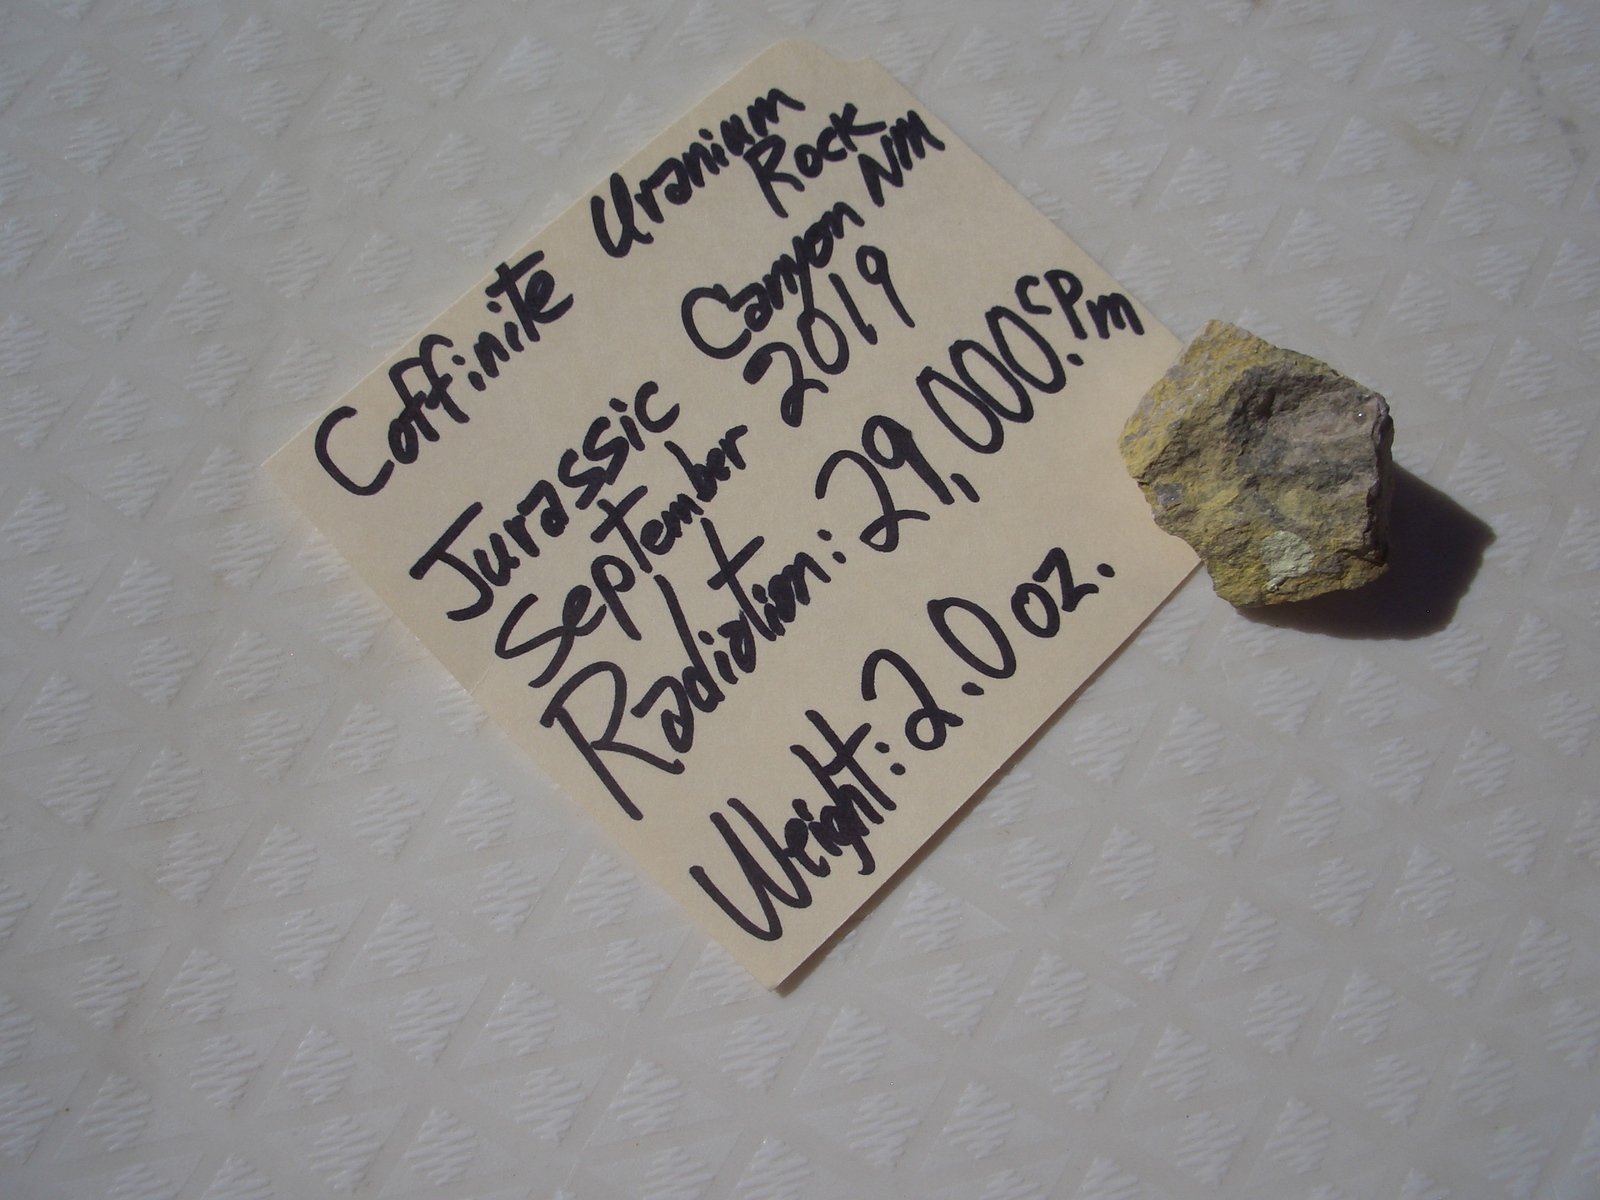 Coffinite Uranium
Rock
Jurassic Canyon NM
September 2019
Radiation: 29,000.cpm
Weight: 2.0 oz.